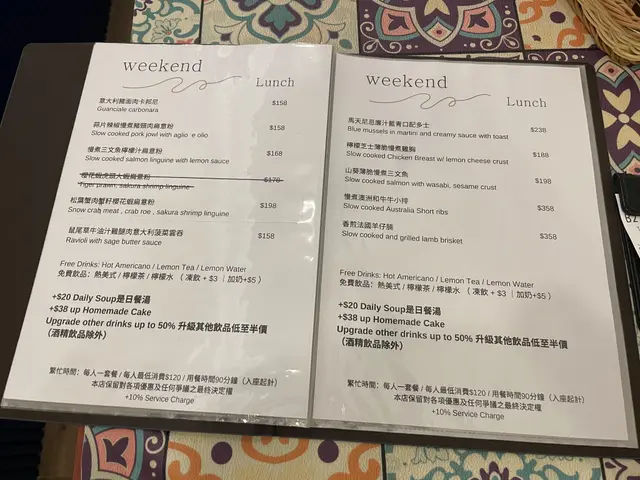 weekend
Lunch
意大利豬面肉卡邦尼 $158
Guanciale carbonara
蒜片辣椒慢煮豬頸肉扁意粉 $158
Slow cooked pork jowl with aglio e olio
慢煮三文魚檸檬汁扁意粉 $168
Slow cooked salmon linguine with lemon sauce
櫻花蝦虎蝦大蝦扁意粉 $178
Tiger prawn, sakura shrimp linguine
松葉蟹肉蟹籽櫻花蝦扁意粉 $198
Snow crab meat , crab roe , sakura shrimp linguine
鼠尾草牛油汁雞腿肉意大利菠菜雲吞 $158
Ravioli with sage butter sauce
Free Drinks: Hot Americano / Lemon Tea / Lemon Water
免費飲品: 熱美式 / 檸檬茶 / 檸檬水 （ 凍飲 + $3 ｜加奶+$5 ）
+$20 Daily Soup是日餐湯
+$38 up Homemade Cake
Upgrade other drinks up to 50% 升級其他飲品低至半價
（酒精飲品除外）
繁忙時間：每人一套餐 / 每人最低消費$120 / 用餐時間90分鐘（入座起計）
本店保留對各項優惠及任何爭議之最終決定權
+10% Service Charge
weekend
Lunch
馬天尼忌廉汁藍青口配多士 $238
Blue mussels in martini and creamy sauce with toast
檸檬芝士薄脆慢煮雞胸 $188
Slow cooked Chicken Breast w/ lemon cheese crust
山葵薄脆慢煮三文魚 $198
Slow cooked salmon with wasabi, sesame crust
慢煮澳洲和牛牛小排 $358
Slow cooked Australia Short ribs
香煎法國羊仔腩 $358
Slow cooked and grilled lamb brisket
Free Drinks: Hot Americano / Lemon Tea / Lemon Water
免費飲品: 熱美式 / 檸檬茶 / 檸檬水 （ 凍飲 + $3 ｜加奶+$5 ）
+$20 Daily Soup是日餐湯
+$38 up Homemade Cake
Upgrade other drinks up to 50% 升級其他飲品低至半價
（酒精飲品除外）
繁忙時間：每人一套餐 / 每人最低消費$120 / 用餐時間90分鐘（入座起計）
本店保留對各項優惠及任何爭議之最終決定權
+10% Service Charge